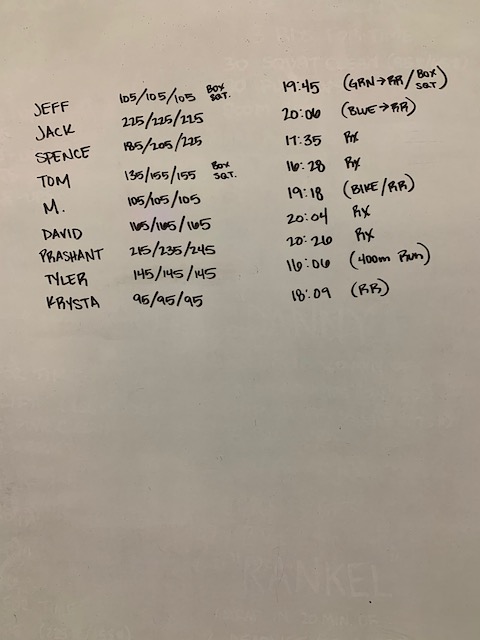 JEFF 105/105/105 BOX SQT. 19:45 (GRN→RR/BOX SQT)
JACK 225/225/225 20:06 (BLUE→RR)
SPENCE 185/205/225 17:35 RX
TOM 135/155/155 BOX SQT. 16:28 RX
M. 105/105/105 19:18 (BIKE/RR)
DAVID 165/165/165 20:04 RX
PRASHANT 215/235/245 20:26 RX
TYLER 145/145/145 16:06 (400m RUN)
KRYSTA 95/95/95 18:09 (RR)
RANKEL